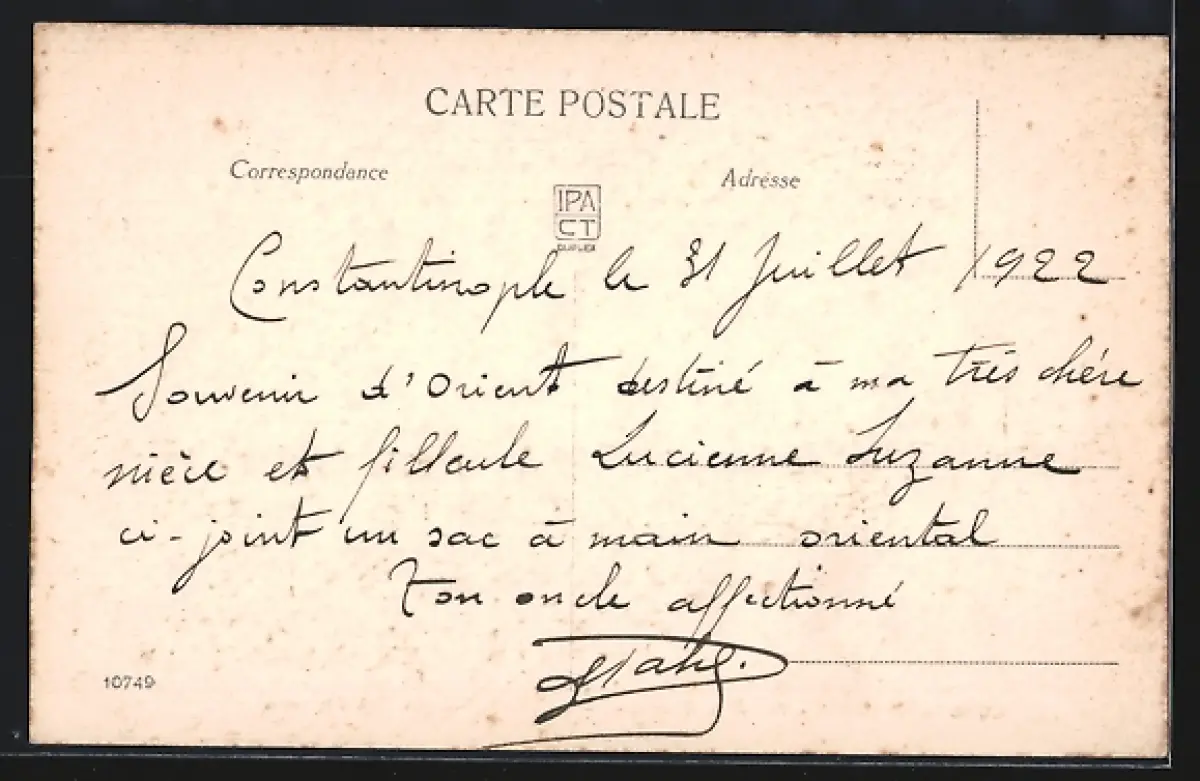 CARTE POSTALE
Correspondance
Adresse
IPA
CT
DUPLEX
Constantinople le 31 Juillet 1922
Souvenir d'Orient destiné à ma très chère
nièce et filleule Lucienne Suzanne
ci-joint un sac à main oriental
Ton oncle affectionné
10749